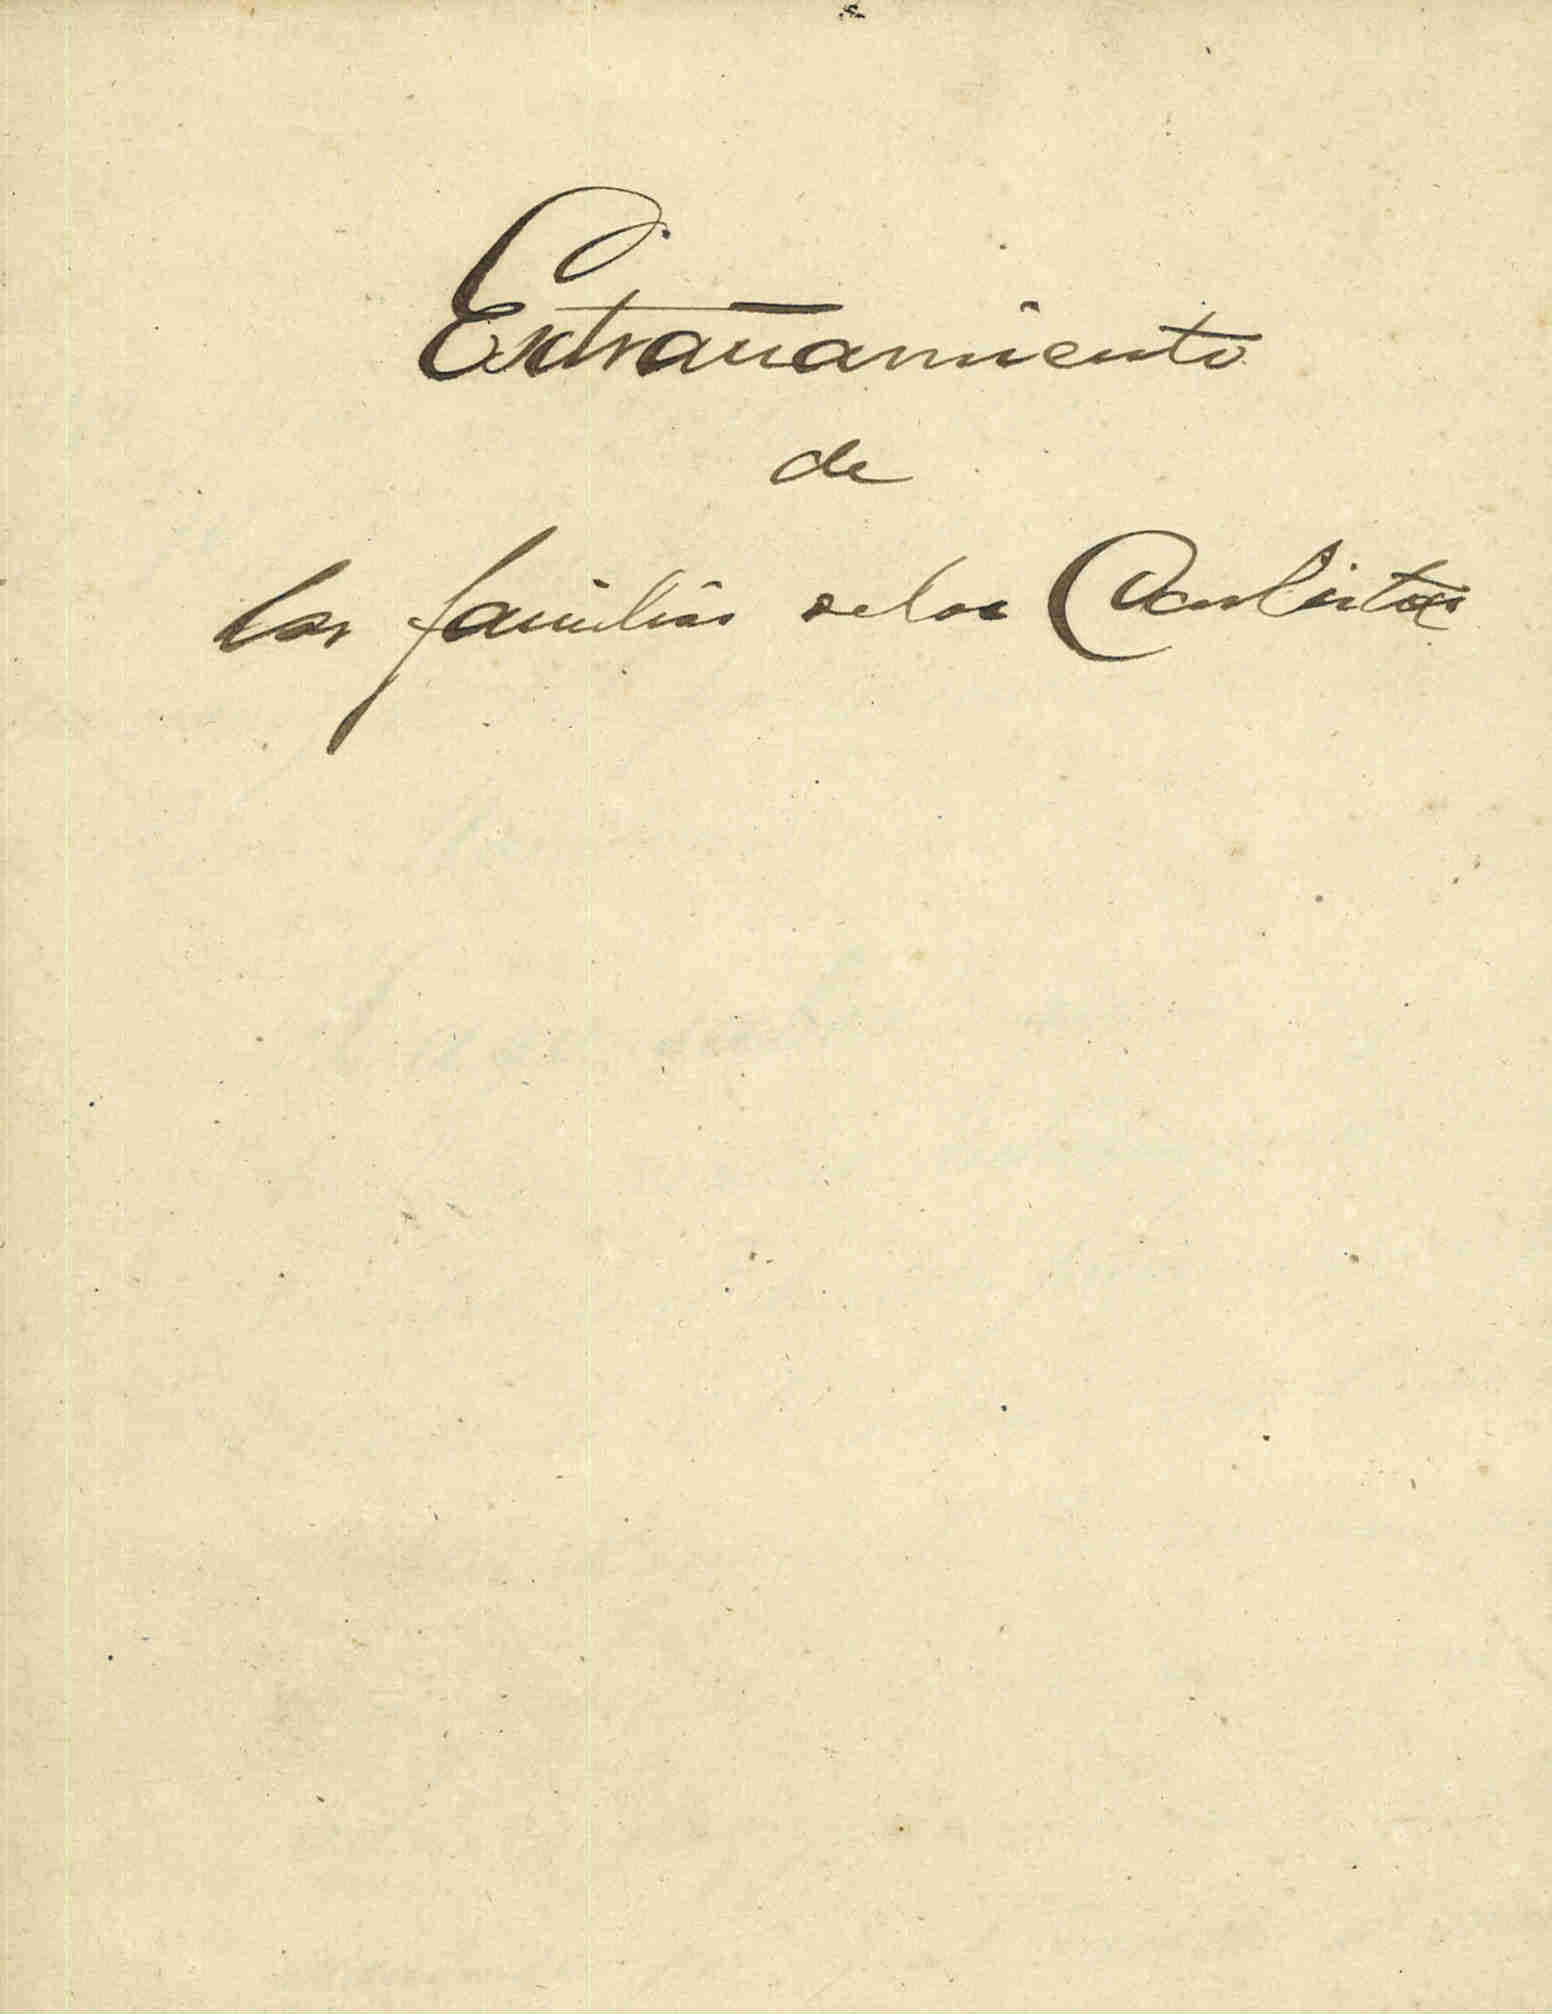 Extrañamiento
de
las familias de los Carlistas